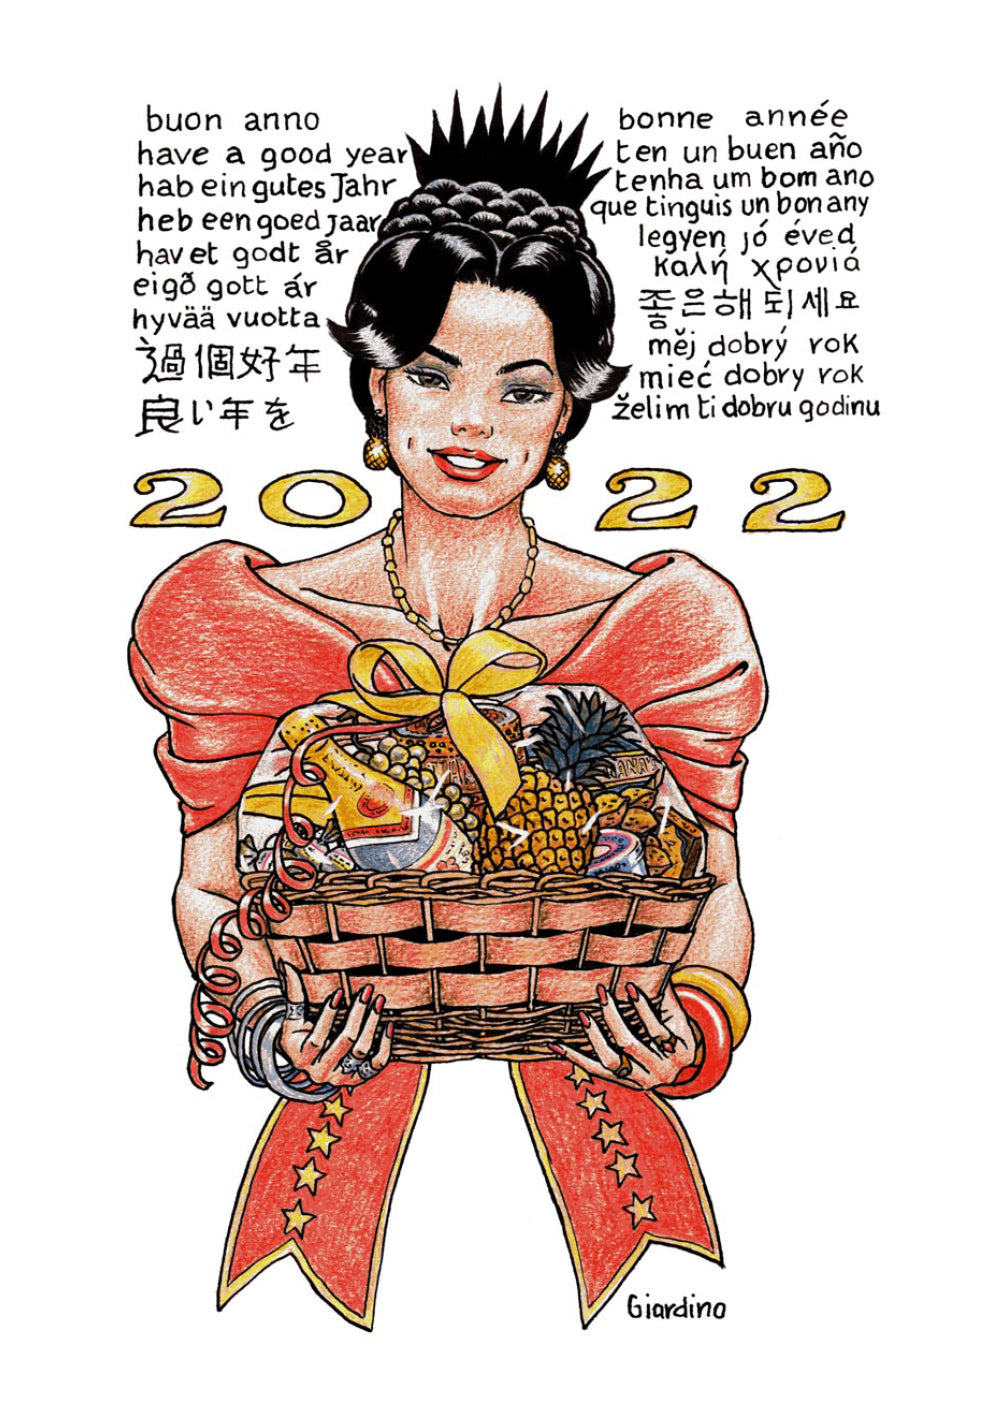 buon anno
have a good year
hab ein gutes Jahr
heb een goed jaar
hav et godt år
eigð gott ár
hyvää vuotta
過個好年
良い年を
bonne année
ten un buen año
tenha um bom ano
que tinguis un bon any
legyen jó éved
καλή χρονιά
좋은해되세요
měj dobrý rok
mieć dobry rok
želim ti dobru godinu
2022
Giardino